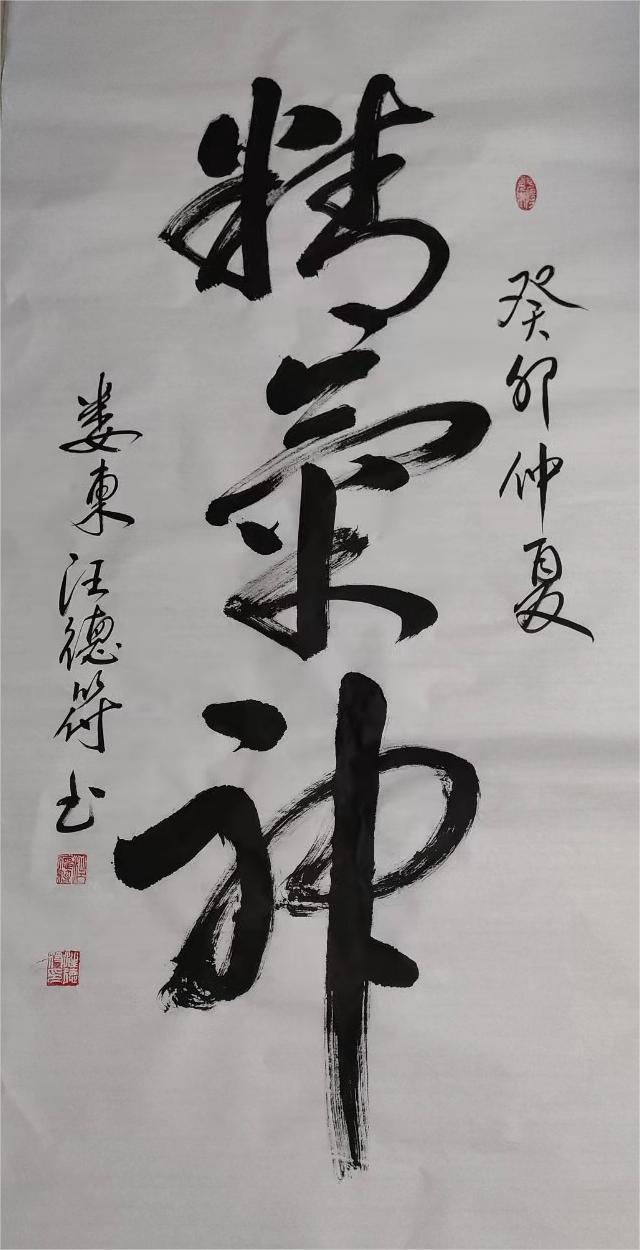 癸卯仲夏
精氣神
娄東汪德符书